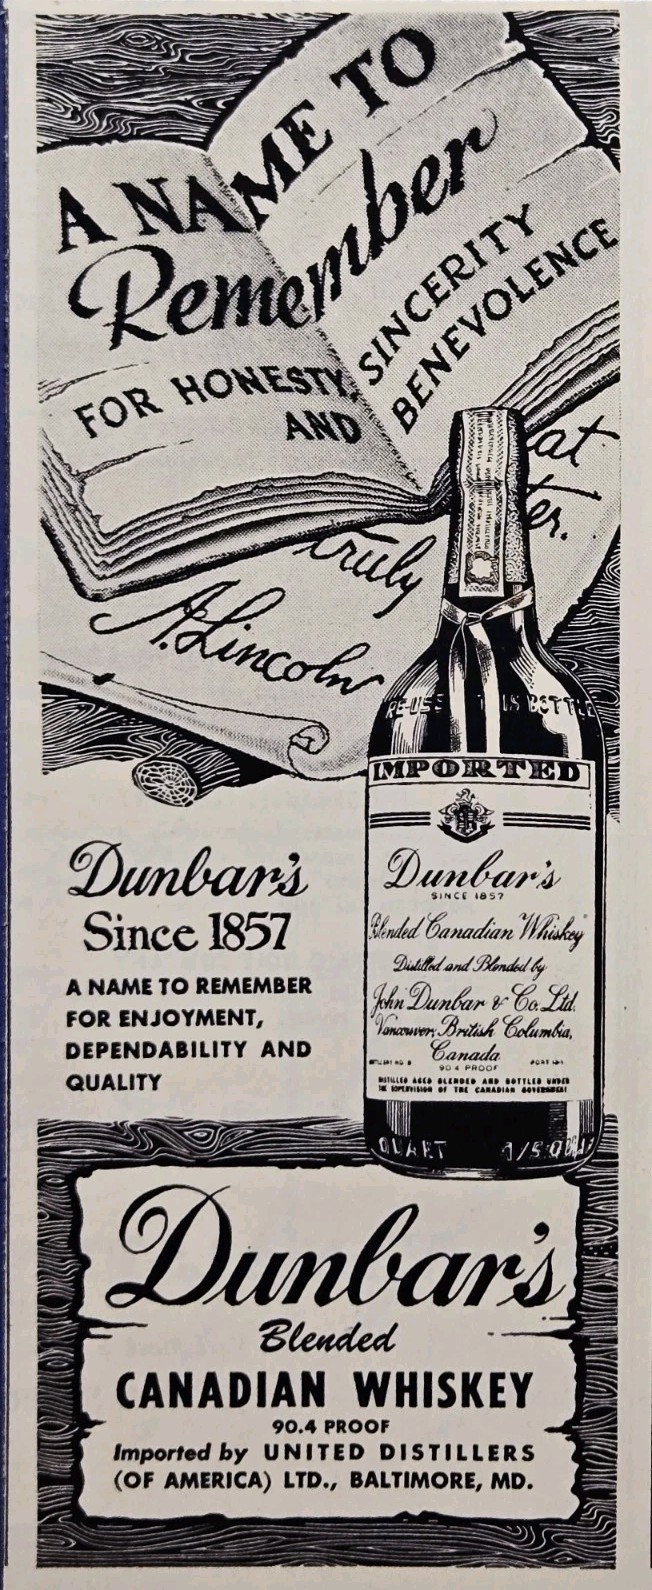 A NAME TO
Remember
FOR HONESTY,
AND
SINCERITY
BENEVOLENCE
at
er.
truly
A. Lincoln
RE-USE THIS BOTTLE
IMPORTED
Dunbar's
SINCE 1857
Blended Canadian Whiskey
Distilled and Blended by
John Dunbar & Co. Ltd.
Vancouver, British Columbia,
Canada
90.4 PROOF
DISTILLED AGED BLENDED AND BOTTLED UNDER
THE SUPERVISION OF THE CANADIAN GOVERNMENT
4/5 QUART
Dunbar's
Since 1857
A NAME TO REMEMBER
FOR ENJOYMENT,
DEPENDABILITY AND
QUALITY
Dunbar's
Blended
CANADIAN WHISKEY
90.4 PROOF
Imported by UNITED DISTILLERS
(OF AMERICA) LTD., BALTIMORE, MD.